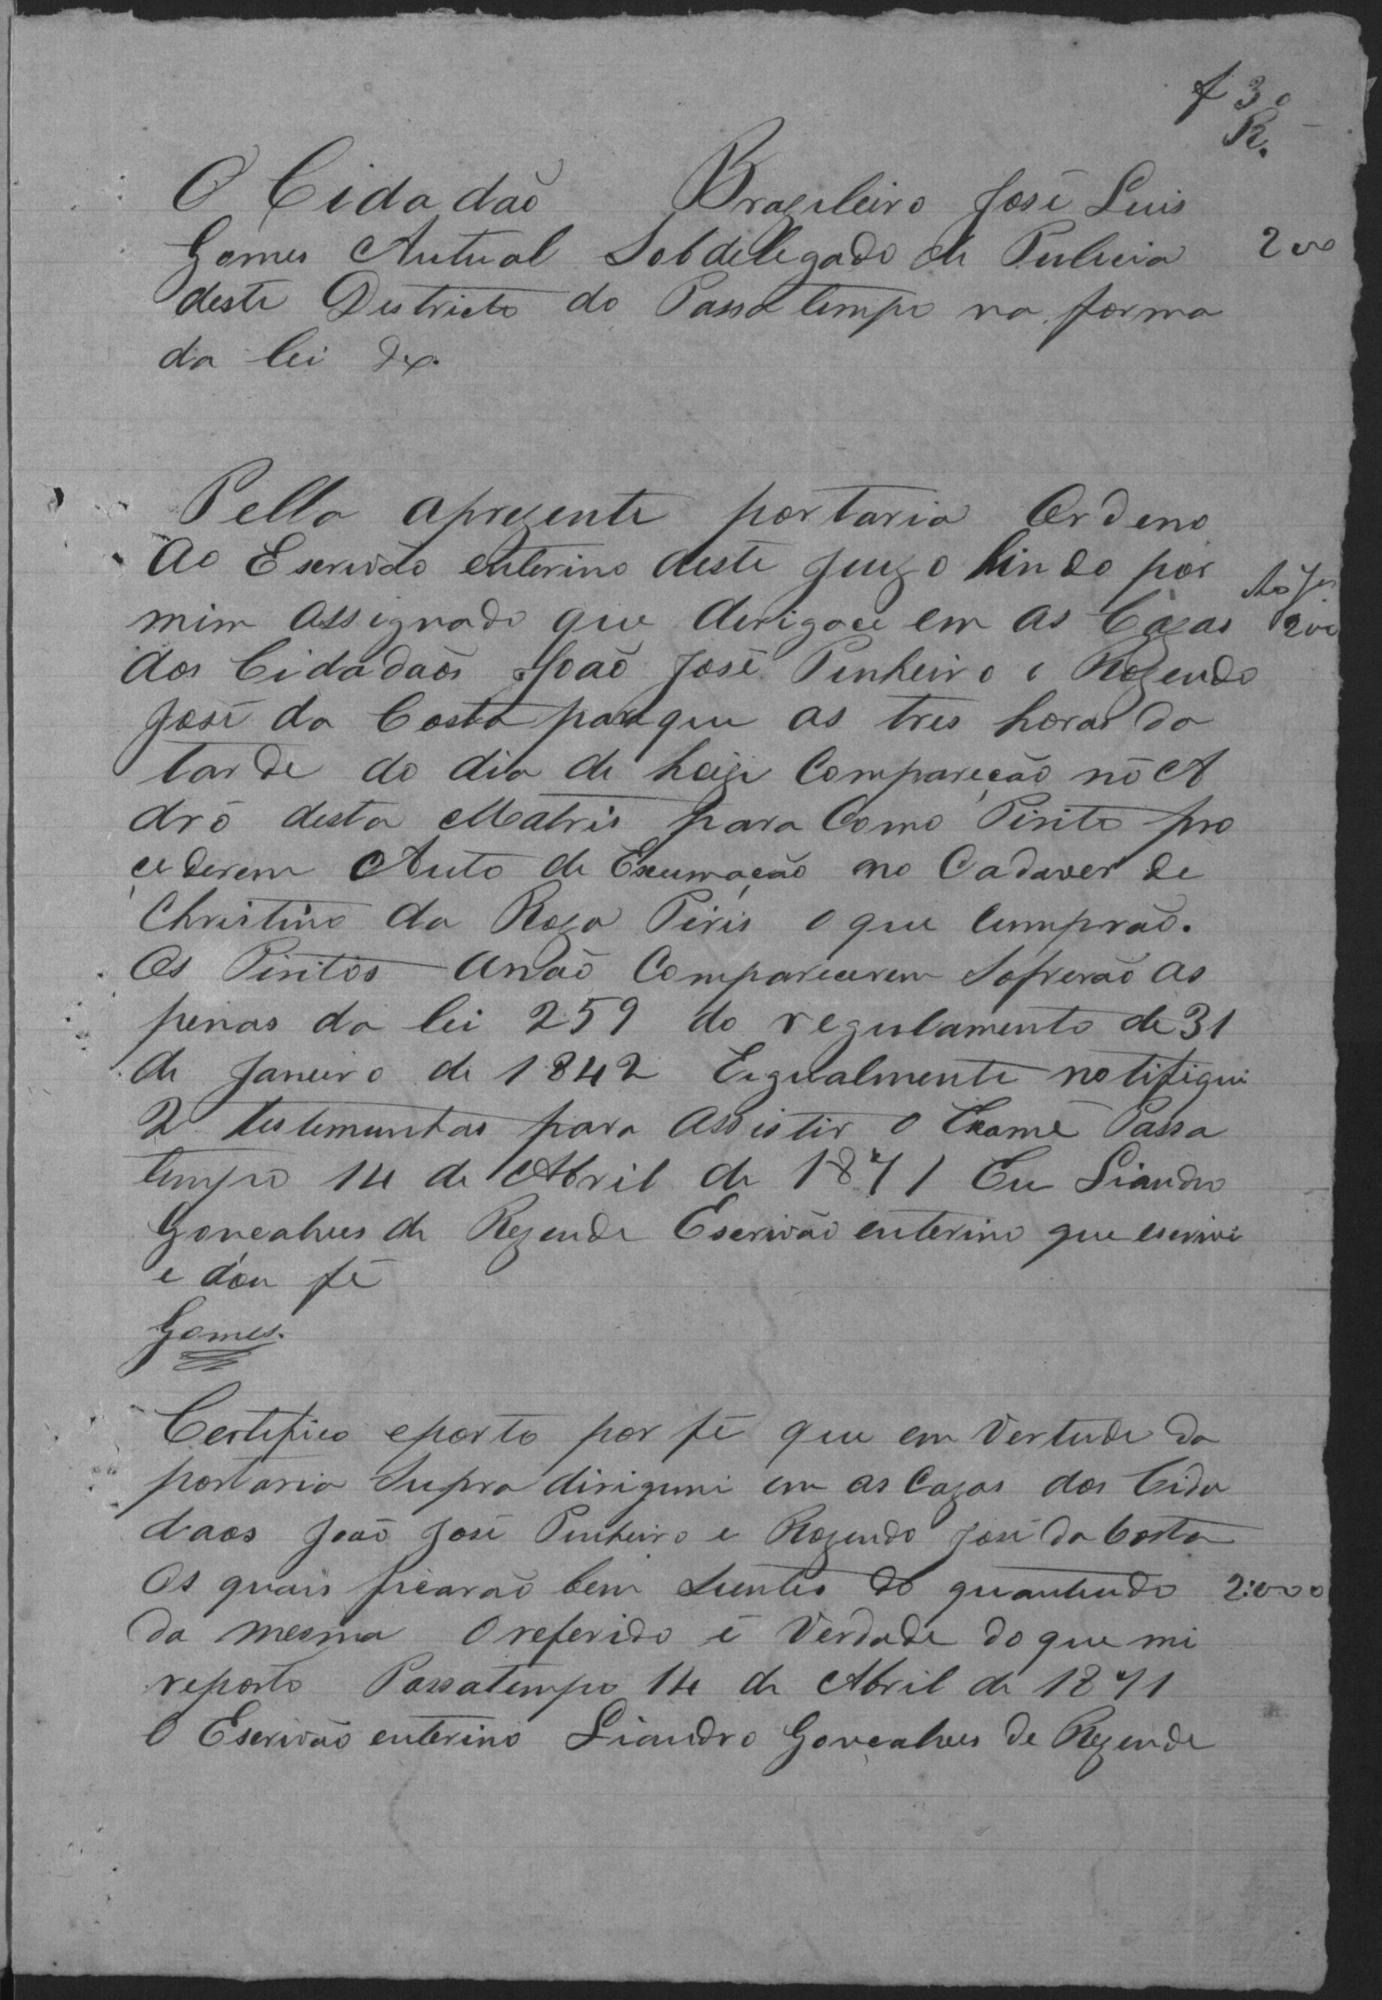 f 3o
R.
O Cidadaõ Brazileiro José Luis
Gomes Autual Sobdelegado de Pulicia 200
deste Districto do Passa tempo na forma
da lei &.
Pella aprezente portaria Ordeno
Ao Escrivão enterino deste Juizo hindo por
mim assignado que derigace em as Cazas 200
dos Cidadaõs Joaõ José Pinheiro e Rozendo
José da Costa para que as tres horas da
tarde do dia de hoje Compareção nó A
dró desta Matris para Como Pirito pro
cederem Auto de Exumação no Cadaver de
Christino da Roza Piris o que Cumprão.
Os Piritos anão Comparecerem Sofrerão as
penas da lei 259 do regulamento de 31
de Janeiro de 1842 Eigualmente notifiqui
2 testemunhas para assistir o Exame Passa
tempo 14 de Abril de 1871 Eu Liandro
Goncalves de Rezende Escrivão enterino que escrivi
e dou fé
Gomes.
Certifico eporto por fé que em Vertude da
portaria Supra dirigimi em as Cazas dos Cida
daos João José Pinheiro e Rozendo José da Costa
Os quais ficarão bem Sientes do quantiudo 2:000
da mesma O referido é Verdade do que mi
reporto Passatempo 14 de Abril de 1871
O Escrivão enterino Liandro Gonçalves de Rezende